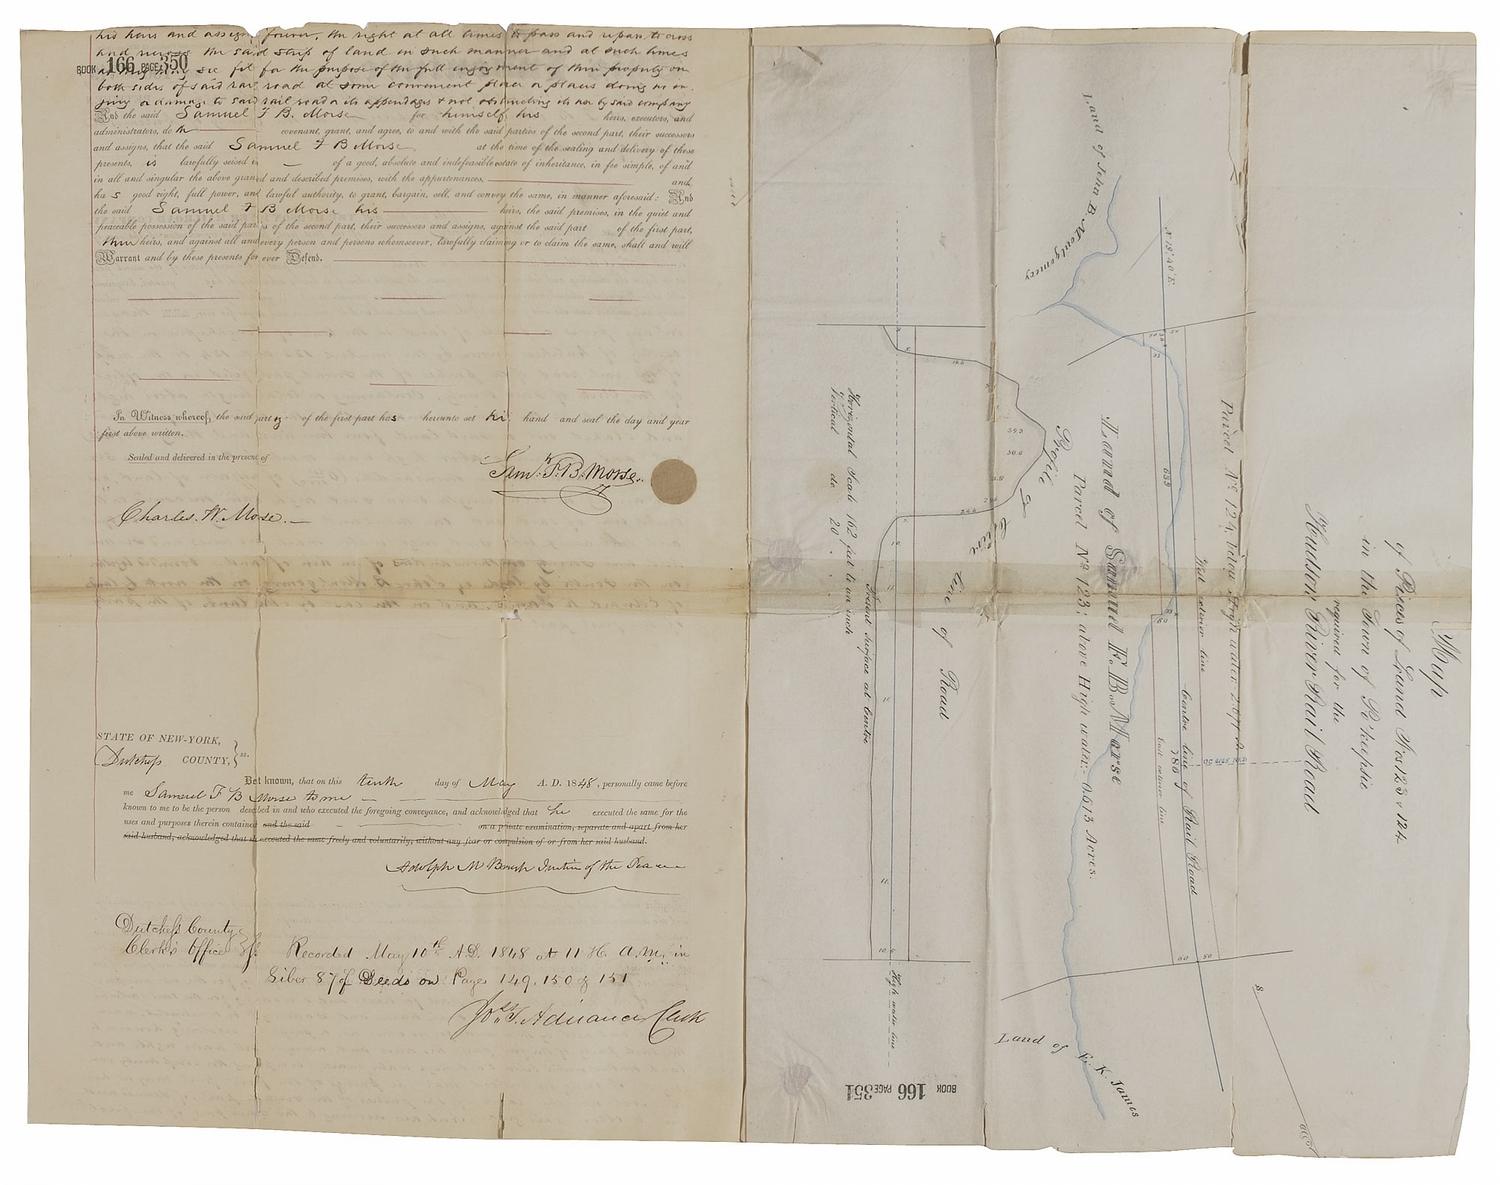 his heirs and assigns forever, the right at all times to pass and repass, to cross
and recross the said strip of land in such manner and at such times
BOOK 166 PAGE 350
as they may see fit for the purpose of the full enjoyment of their property on
both sides of said rail road at some convenient place or places doing no in-
jury or damage to said rail road or its appendages & not obstructing its use by said company
And the said Samuel F B. Morse for himself his heirs, executors, and
administrators, doth covenant, grant, and agree, to and with the said parties of the second part, their successors
and assigns, that the said Samuel F B Morse at the time of the sealing and delivery of these
presents, is lawfully seised in of a good, absolute and indefeasible estate of inheritance, in fee simple, of and
in all and singular the above granted and described premises, with the appurtenances. and
has good right, full power, and lawful authority, to grant, bargain, sell, and convey the same, in manner aforesaid: And
the said Samuel F B Morse his heirs, the said premises, in the quiet and
peaceable possession of the said parties of the second part, their successors and assigns, against the said part of the first part,
their heirs, and against all and every person and persons whomsoever, lawfully claiming or to claim the same, shall and will
Warrant and by these presents for ever Defend.
In Witness whereof, the said party of the first part has hereunto set his hand and seal the day and year
first above written.
Sealed and delivered in the presence of
Saml. F. B. Morse.
Charles. W. Morse.
STATE OF NEW-YORK,
Dutchess COUNTY, } ss.
Be it known, that on this tenth day of May A. D. 1848, personally came before
me Samuel F B Morse to me
known to me to be the person described in and who executed the foregoing conveyance, and acknowledged that he executed the same for the
uses and purposes therein contained and the said on a private examination, separate and apart from her
said husband, acknowledged that she executed the same freely and voluntarily, without any fear or compulsion of or from her said husband.
Justice of the Peace
Dutchess County
Clerk's Office } ss.
Recorded May 10th A.D. 1848 at 11 H. A.M. in
Liber 87 of Deeds on Pages 149, 150 & 151
Jos. T. Adriance Clerk
Map
of Pieces of Land Nos 123 & 124
in the Town of Po'keepsie
required for the
Hudson River Rail Road
Parcel No. 124,
West exterior line
Centre line of Rail Road
780
East exterior line
N 18° 40' E.
633
Land of John B. Montgomery
Land of Samuel F. B. Morse
Parcel No. 123; above High water:- 0.613 Acres.
Land of E. K. James
S
Profile of Centre line of Road
Horizontal Scale 162 feet to an inch
Vertical do 20
Present surface at Centre
High water line
BOOK 166 PAGE 351